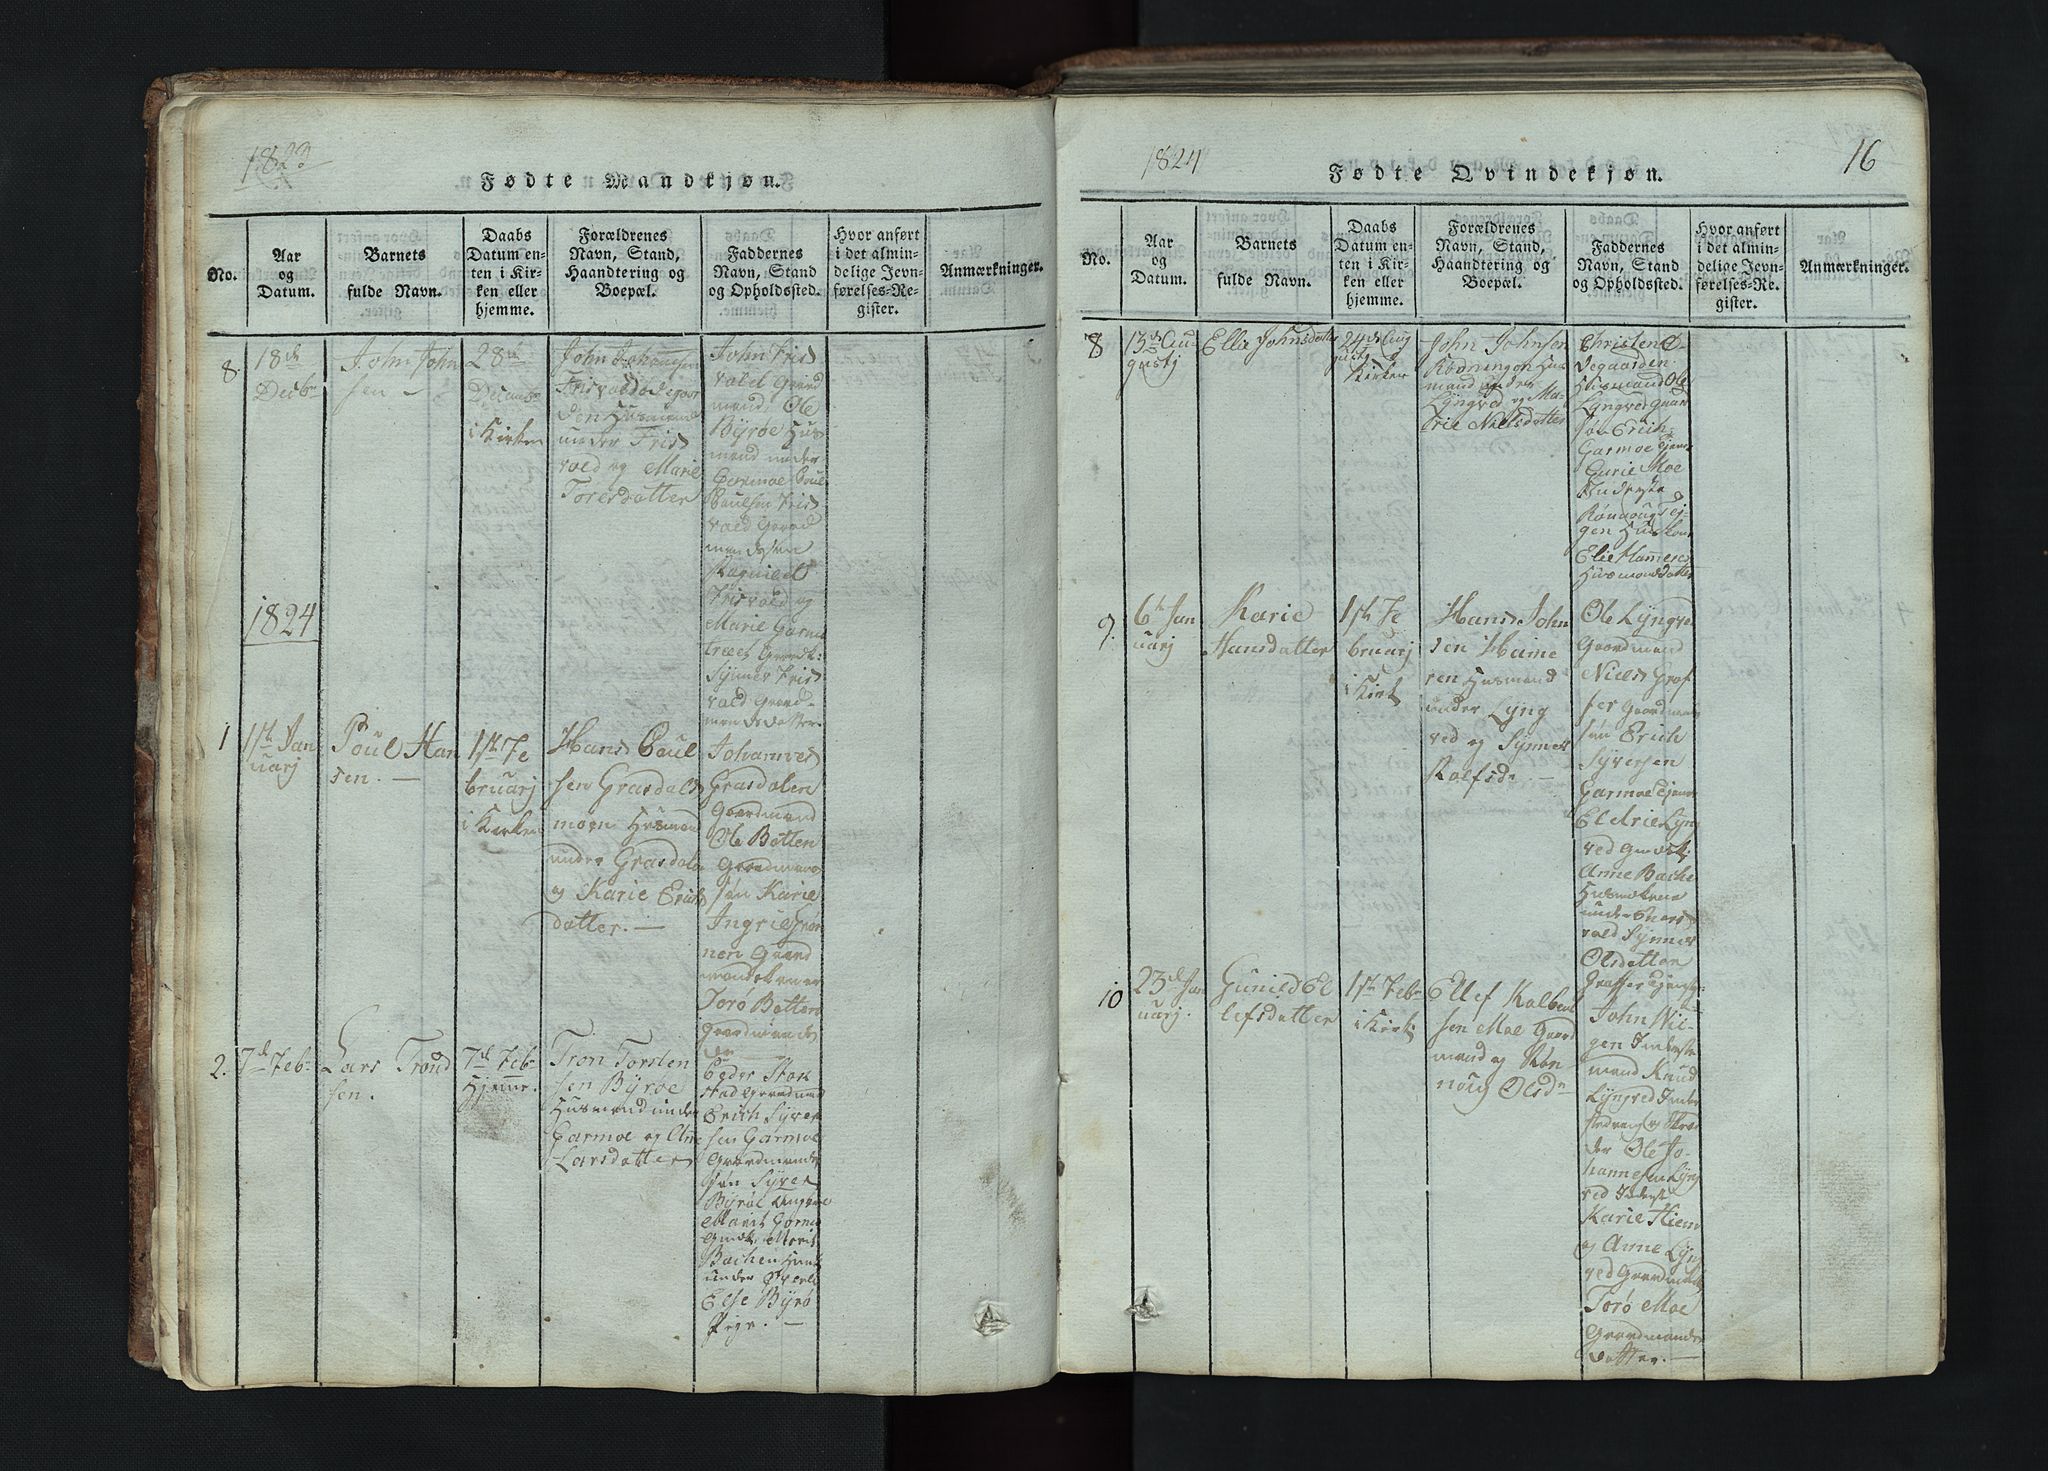 1823
Fødte Mandkjøn.
No.
Aar
og
Datum.
Barnets
fulde Navn.
Daabs
Datum en-
ten i Kir-
ken eller
hjemme.
Forældrenes
Navn, Stand,
Haandtering og
Boepæl.
Faddernes
Navn, Stand
og Opholdssted.
Hvor anført
i det almin-
delige Jevn-
førelses-Re-
gister.
Anmærkninger.
8.
18de
Decbr
John John
sen –
28de
Decembr
i Kirken
John Johansen
Frisvold
den Husmand
under Fris
vold og Marie
Toresdatter
John Fris
vold Gaard
mand, Ole
Byrøe Hus
mand under
Garmoe Poul
Poulsen Fris
vold Gaard
mandssøn
Ragnild
Frisvold og
Marie Garmo
Synnev Fris
vold Gaard
mandsdatter
1824
1
1ste Jan
uarj
Poul Han
sen. –
1ste Fe
bruarj
i Kirken
Hans Poul
sen Grasdals
moen Husmand
under Grasdalen
og Karie Erichs
datter. –
Johannes
Grasdalen
Gaardmand
Ole Botten
Gaardmands
søn Karie
Ingrie Grøn
nen Gaard
mandskoner
Torø Botten
Gaardmands
der –
2.
7de Febr
Lars Trond
sen.
7de Febr
Hjemme.
Tron Torsten
sen Byrøe
Husmand under
Garmoe og Ane
Larsdatter
Peder Stor
stad Gaardmand
Erich Syver
sen Garmoe
Gaardmands
søn Syver
Byrøe
Marit Garmo
Marit
Bachen
under
Else Byrø
Pige. –
1824
Fødte Qvindekjøn.
16
No.
Aar
og
Datum.
Barnets
fulde Navn.
Daabs
Datum en-
ten i Kir-
ken eller
hjemme.
Forældrenes
Navn, Stand,
Haandtering og
Boepæl.
Faddernes
Navn, Stand
og Opholdssted.
Hvor anført
i det almin-
delige Jevn-
førelses-Re-
gister.
Anmærkninger.
8
13de Au
gustj
Elie Johnsdatter
24de Aug
gustj
Kirken
John Johnsen
Rødningen Hus
mand under
Lyngved og Ma-
rie Nielsdatter
Christen Ø-
degaarden
Husmand Ole
Lyngved Gaar
søn Erich
Garmoe Tjener
Gurie Moe
Inderste
Rønnoug Tej-
gen Huskone
Elie Hammeren
Husmandsdatter
9.
6te Jan
uarj
Karie
Hansdatter
1ste Fe
bruarj
i Kirk
Hans John
sen Hame
ren Husmand
under Lyng
ved og Synnev
Rolfsdr –
Ole Lyngve
Gaardmand
Niels Grof
fer Gaardmans
søn Erich
Syversen
Garmoe Tjener
Eldrie Lyng
ved
Anne Bache
Huusmkone
under
vold Synnev
Olsdatter
Graffer
10
23de Jan
uarj.
Gunild El
lefsdatter
1ste Febr
i Kirk:
Ellef Kolben
sen Moe Gaard
mand og Røn
noug Olsdr
John Wil-
gen Inderste
mand Knud
Lyngved Inder
der Ole Jo-
hannesen Lyng
ved Inderst
Karie Hiem
og Anne Lyng
ved Gaardm
Torø Moe
Gaardmands
datter. –